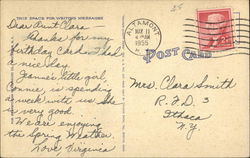 THIS SPACE FOR WRITING MESSAGES
Dear Aunt Clara
Thanks for my
Birthday Card. I had
a nice day.
Jeanie's little girl,
Connie, is spending
a week with us. She
is very good.
We are enjoying
the Spring Weather.
Love, Virginia
ALTAMONT
MAY 11
1955
N.Y.
POST CARD
Mrs. Clara Smith
R.F.D. 3
Ithaca
N.Y.